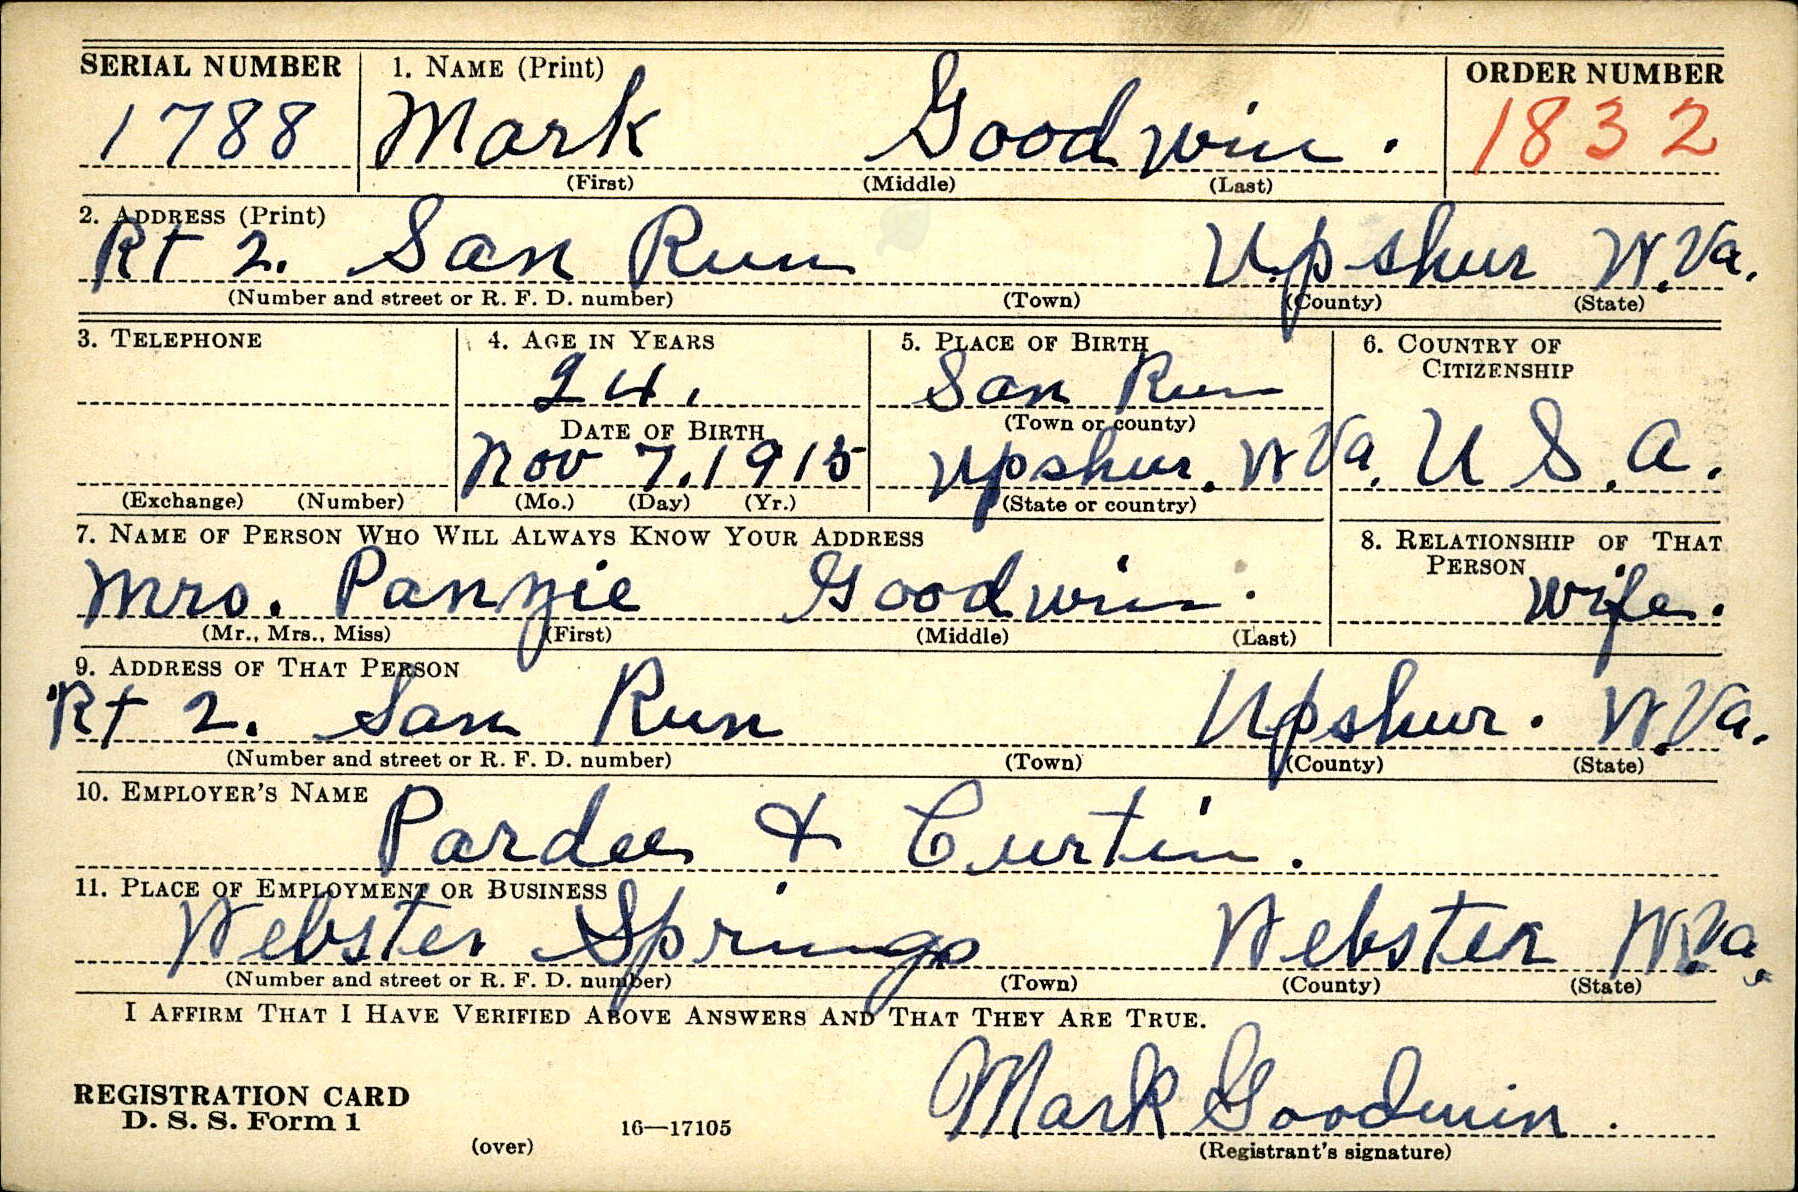 SERIAL NUMBER 1. NAME (Print) ORDER NUMBER
1788 Mark Goodwin. 1832
(First) (Middle) (Last)
2. ADDRESS (Print)
Rt 2. San Run Upshur W.Va.
(Number and street or R. F. D. number) (Town) (County) (State)
3. TELEPHONE 4. AGE IN YEARS 5. PLACE OF BIRTH 6. COUNTRY OF CITIZENSHIP
24. San Run
DATE OF BIRTH (Town or county)
Nov 7. 1915 Upshur. W Va. U S. A.
(Exchange) (Number) (Mo.) (Day) (Yr.) (State or country)
7. NAME OF PERSON WHO WILL ALWAYS KNOW YOUR ADDRESS 8. RELATIONSHIP OF THAT PERSON
Mrs. Panzie Goodwin. Wife.
(Mr., Mrs., Miss) (First) (Middle) (Last)
9. ADDRESS OF THAT PERSON
Rt 2. San Run Upshur. W.Va.
(Number and street or R. F. D. number) (Town) (County) (State)
10. EMPLOYER'S NAME
Pardee & Curtin.
11. PLACE OF EMPLOYMENT OR BUSINESS
Webster Springs Webster W.Va.
(Number and street or R. F. D. number) (Town) (County) (State)
I AFFIRM THAT I HAVE VERIFIED ABOVE ANSWERS AND THAT THEY ARE TRUE.
REGISTRATION CARD
D. S. S. Form 1 Mark Goodwin.
(over) 16—17105 (Registrant's signature)